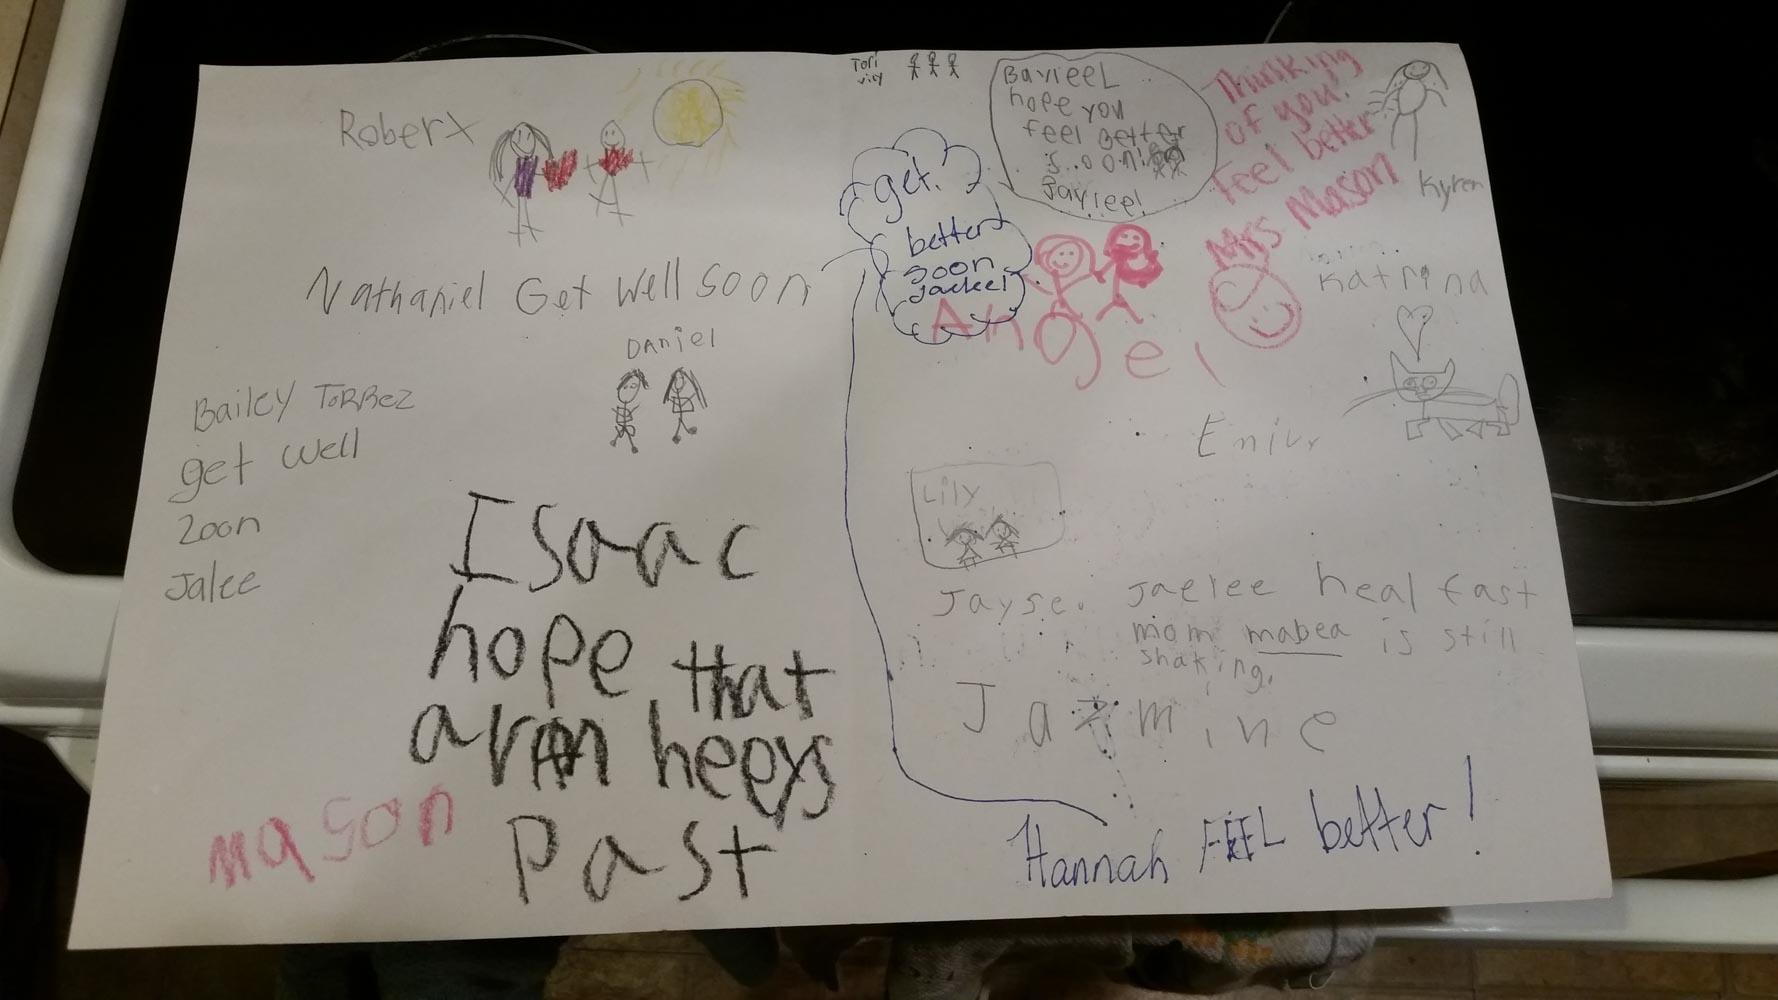 Robert
Nathaniel Get Well Soon
Daniel
Bailey Torrez
get well
zoon
Jalee
Isaac
hope that
arm
Past
mason
Tori
get
better
soon
Jaeleel
hope you
feel better
Thinking
of you!
Feel better
Mrs Mason
Kyren
Katrina
Angel
Lily
Jayse. Jaelee heal fast
mom mabea is still
shaking.
Jazmine
Hannah FEEL better!